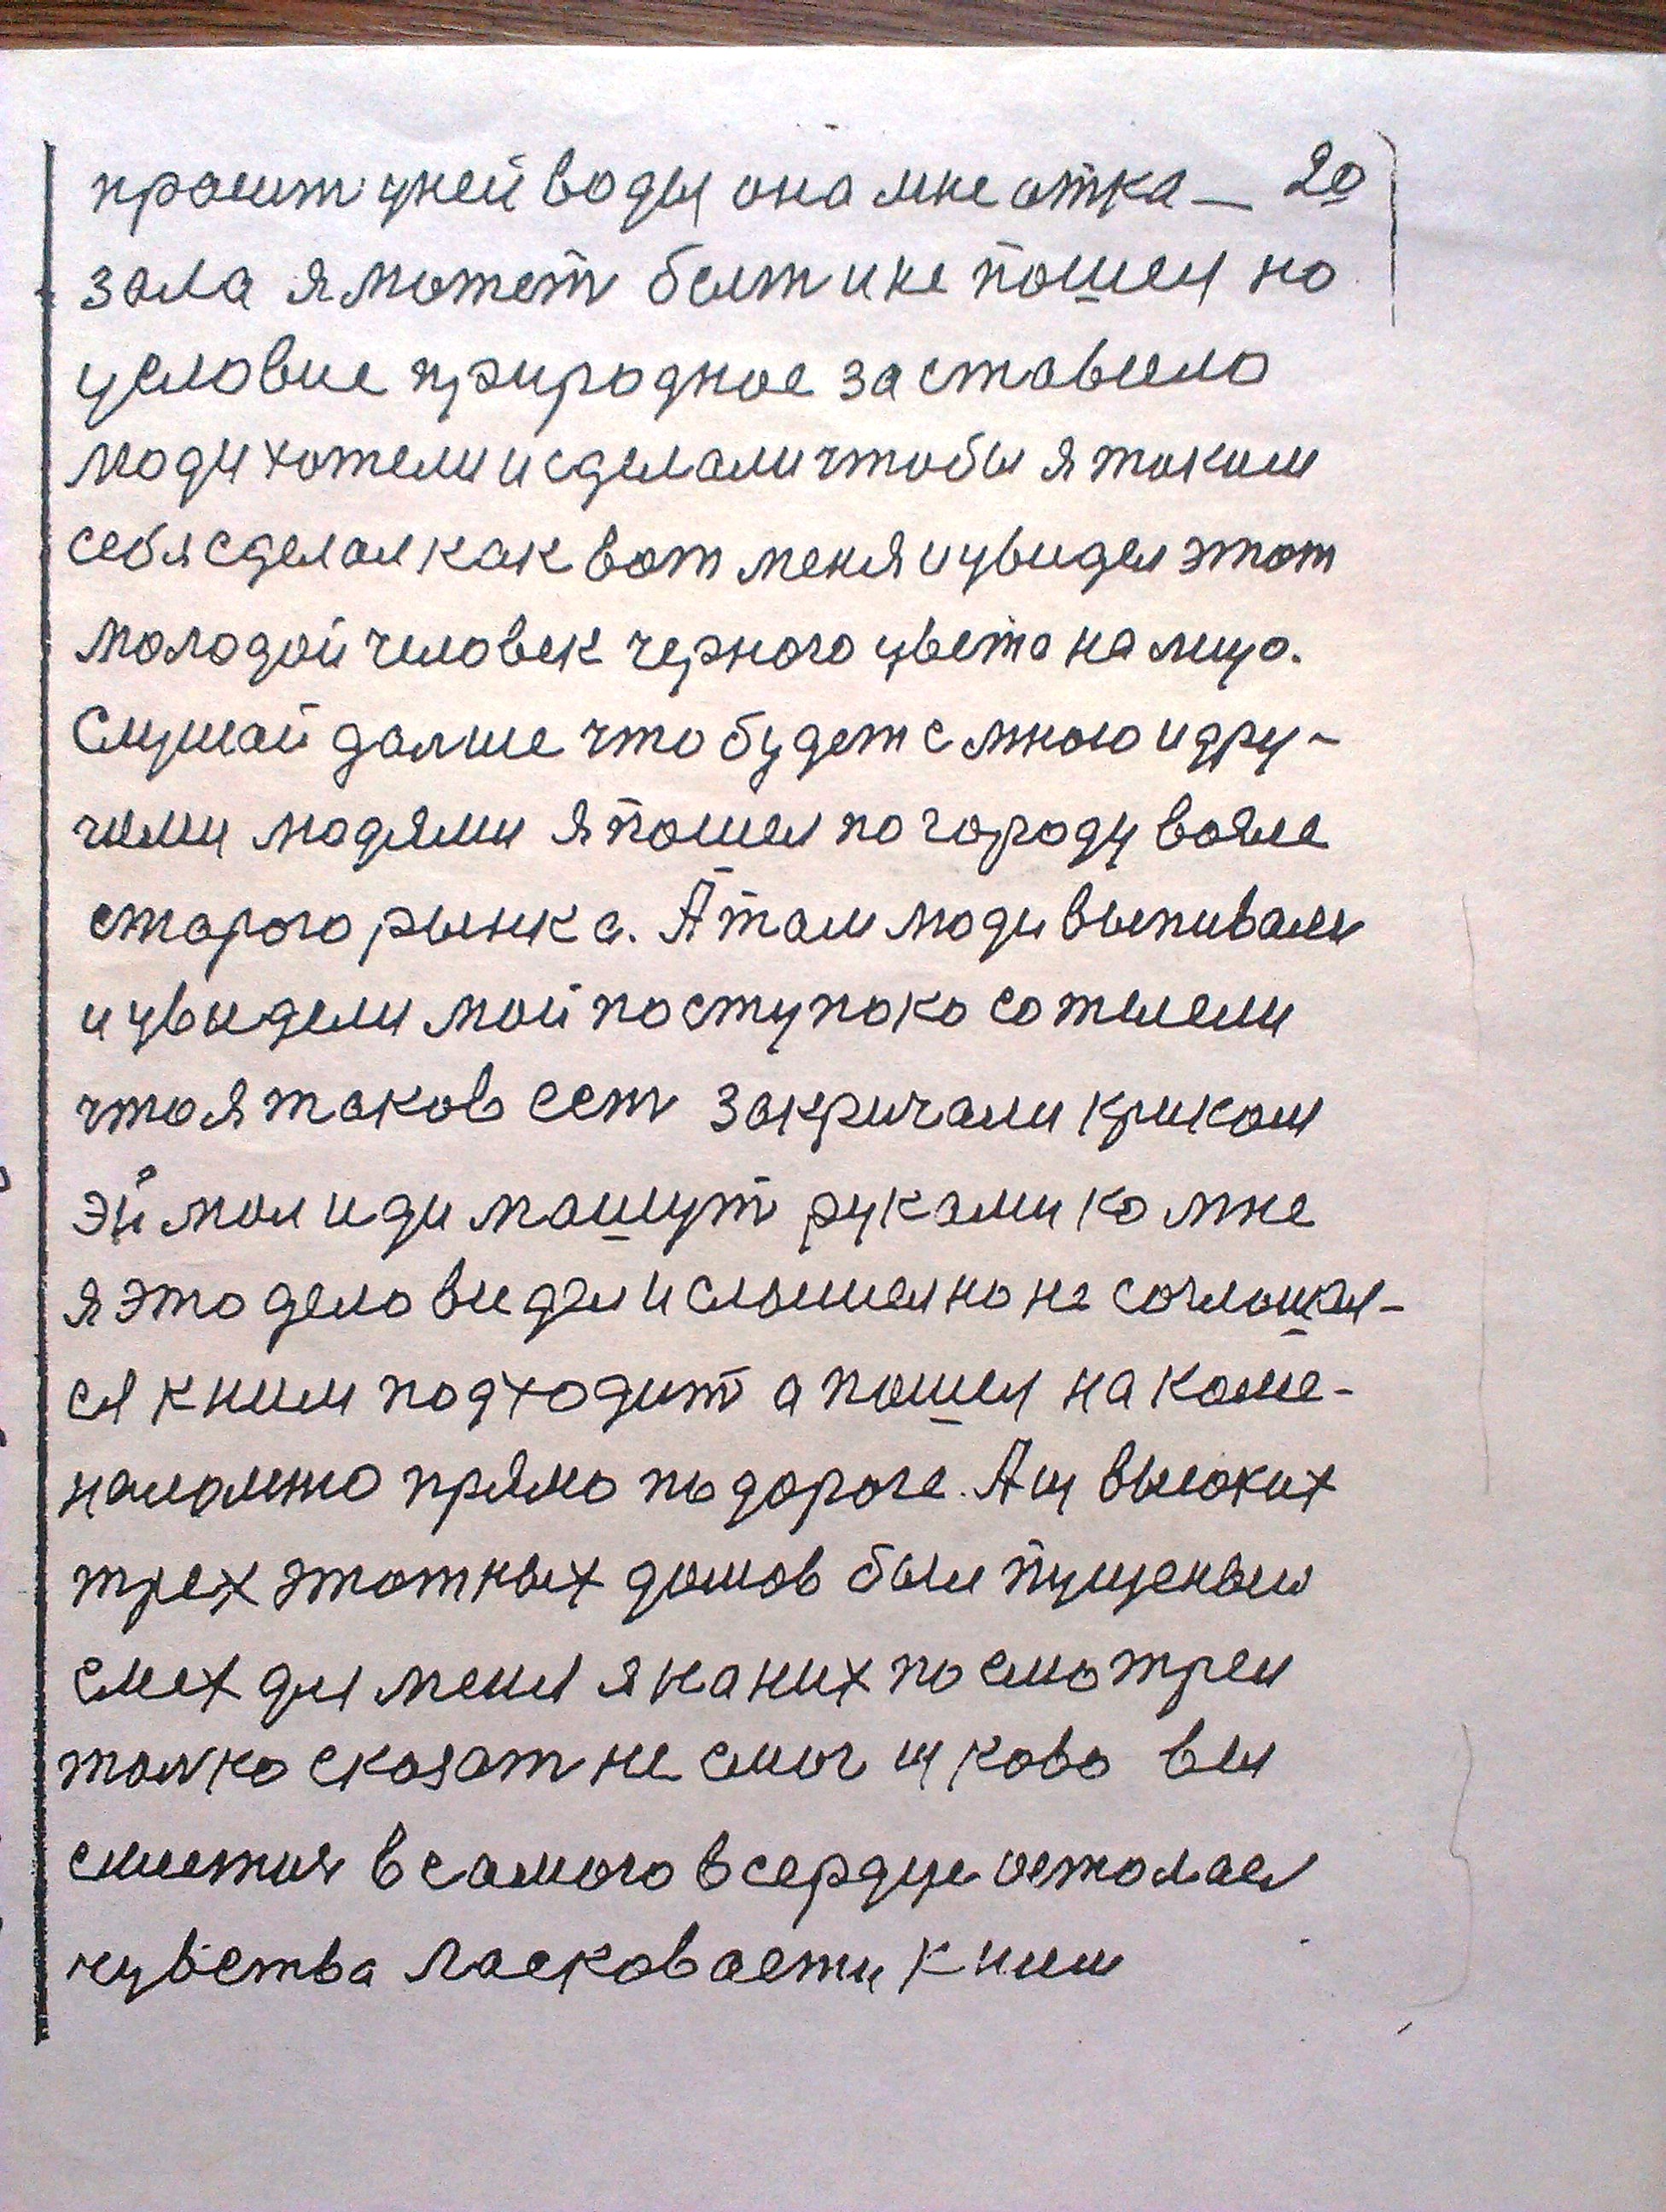 просит уней воды она мне отка— 20
зала я может быт и не пошел но
условие природное заставило
люди хотели и сделали чтобы я таким
себя сделал как вот меня и увидел этот
молодой человек черного цвета на лицо.
Слушай далше что будет с мною и дру-
гими людями я пошел по городу возле
старого рынка. А там люди выпивали
и увидели мой поступок
что я таков ест закричали криком
эй мол иди машут руками ко мне
я это дело видел и слышел но не соглошал-
ся к ним подходит а пошел на
прямо по дороге. А у высоких
трех этотных домов были пущеныи
смех для меня я на них посмотрел
толко сказат не смог у ково вы
в самого в сердце осталаси
чувства ласковасти к ним